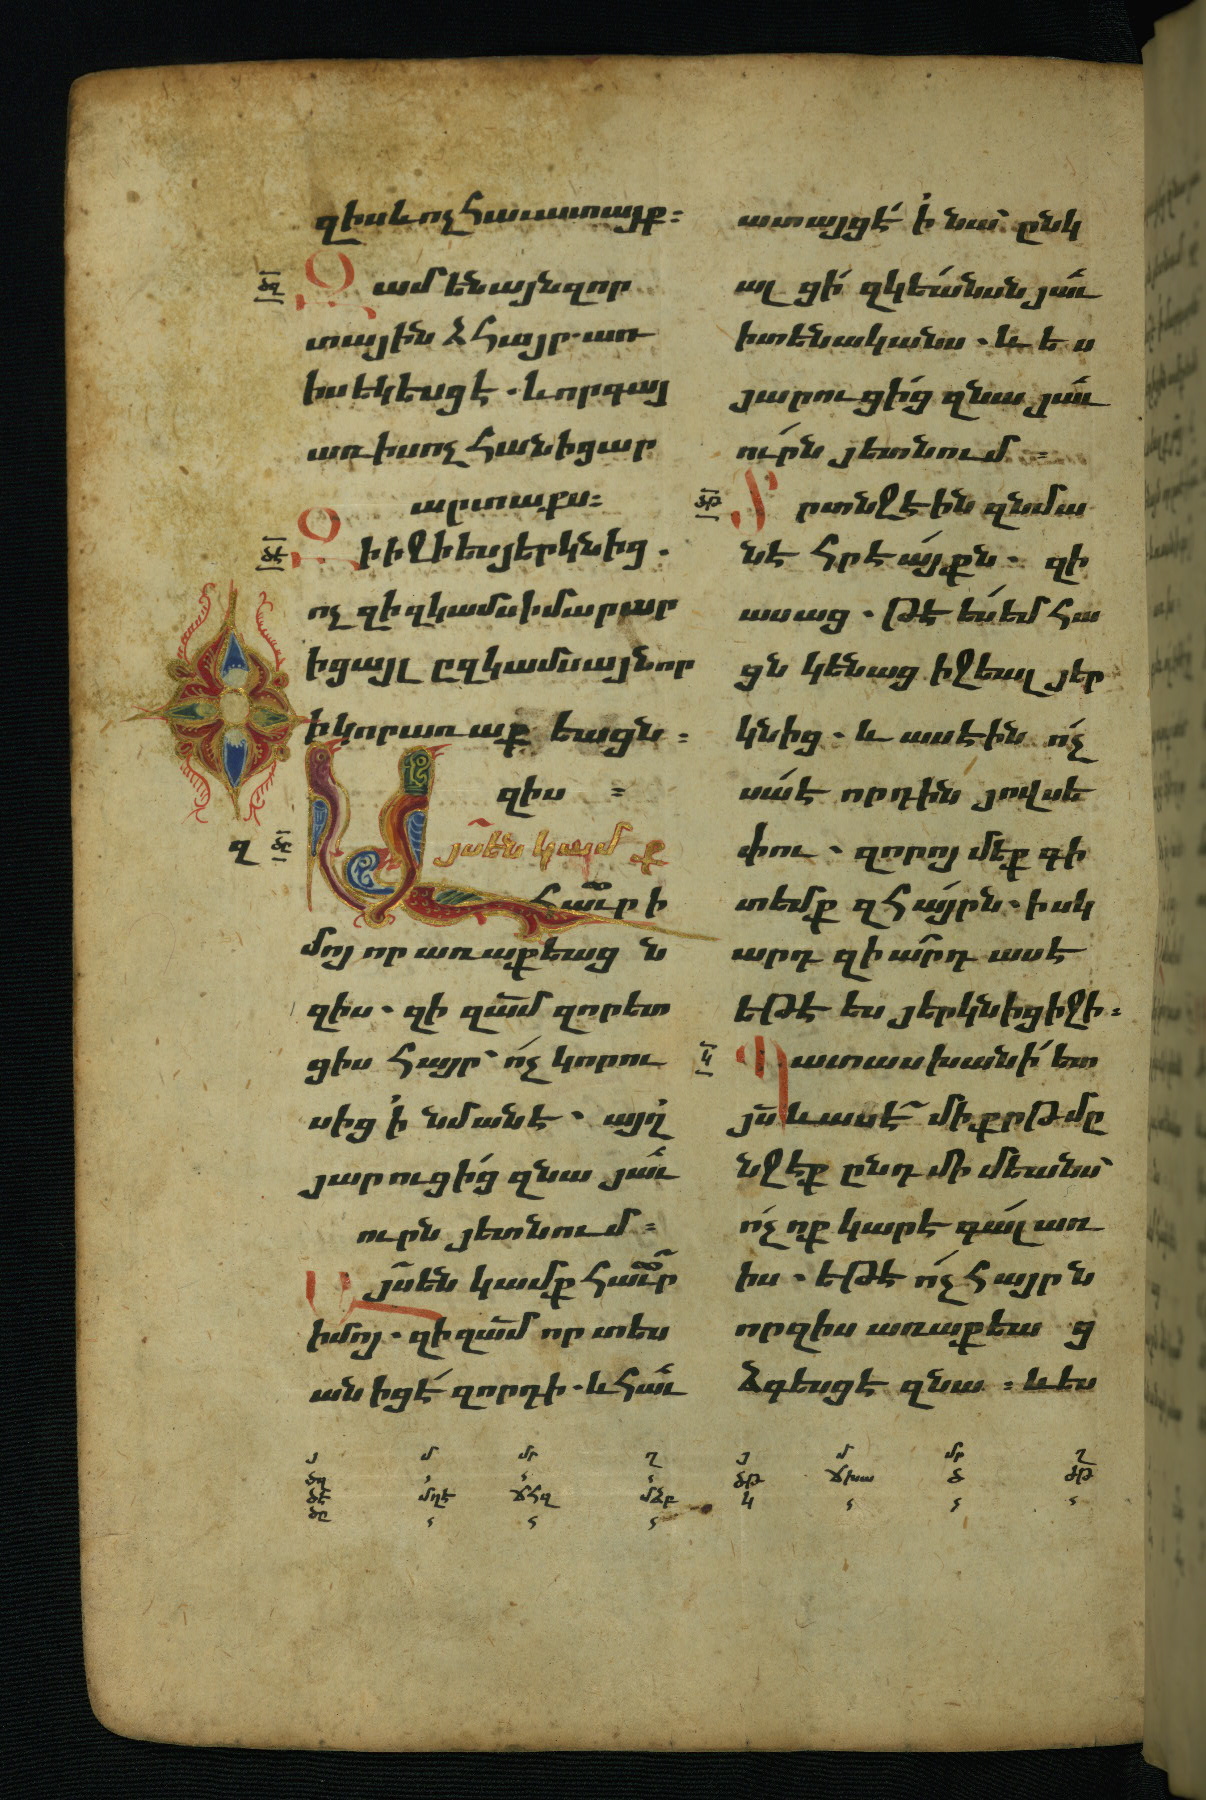 զիս և ոչ հաւատայք։
ծզ Զամենայն զոր
տայ ինձ հայր· առ
իս եկեսցէ· և որ գայ
առ իս ոչ հանից ար
արտաքս։
ծէ Զի իջի ես յերկնից.
ոչ զի զկամս իմ արար
ից այլ ըզկամս այնոր
իկ որ առաքեացն։
զիս ։
զ ծը Այս են կամք
հաւր ի
մոյ որ առաքեաց ն
զիս· զի զամ զոր ետ
ցիս հայր՝ ո՛չ կորու
սից ի նմանէ· այղ
յարուցի՛ց զնա յաւ
ուրն յետնում։
Այս են կամք հաւր
իմոյ· զի զամ որ տես
անիցէ՛ զորդի· և հաւ
ատայցէ՛ ի նա՝ ընկ
ալ ցի՛ զկեանսն յաւ
իտենականս· և ես
յարուցի՛ց զնա յաւ
ո՛ւրն յետնում ։
ծթ Տրտնջէին զնմա
նէ հրէա՛յքն· զի
ասաց· թէ ե՛ս եմ հա
ցն կենաց իջեալ յեր
կնից· և ասէին ո՛չ
սա՛ է որդին յովսե
փու· զորոյ մեք գի
տեմք զհա՛յրն· իսկ
արդ զիա՞րդ ասէ
եթէ ես յերկնից իջի։
կ Պատասխանի՛ ետ
յս և ասէ՝ մի քրթմը
նջէք ընդ միմեանս՝
ո՛չ ոք կարէ գա՛լ առ
իս· եթէ ո՛չ հայրն
որ զիս առաքեա ց
ձգեսցէ զնա ։ և ես
յ մ մր ղ յ մ մր ղ
ծզ ծթ ճխա ծ ծթ
ծէ մղէ ճհզ մձբ կ
ծը